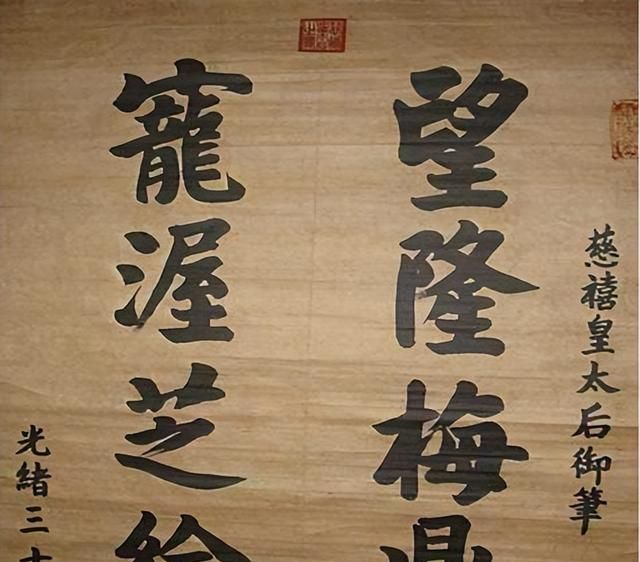 慈禧皇太后御筆
望隆梅鼎
寵渥芝
光緒三十